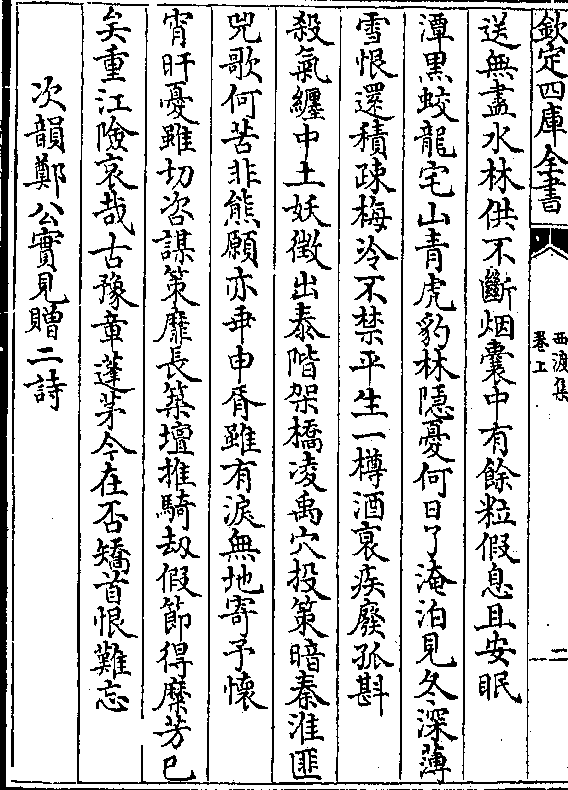 欽定四庫全書
西渡集
卷上
二
送無盡水林供不斷烟囊中有餘粒假息且安眠
潭黒蛟龍宅山青虎豹林隠憂何日了淹泊見冬深薄
雪恨還積疎梅冷不禁平生一樽酒衰疾廢孤斟
殺氣纒中土妖徴出泰階架橋凌禹穴投策暗秦淮匪
兕歌何苦非熊願亦乖申胥雖有淚無地寄予懷
宵旰憂雖切咨謀策靡長築壇推騎刼假節得糜芳已
矣重江險哀哉古豫章蓬茅今在否矯首恨難忘
次韻鄭公實見贈二詩